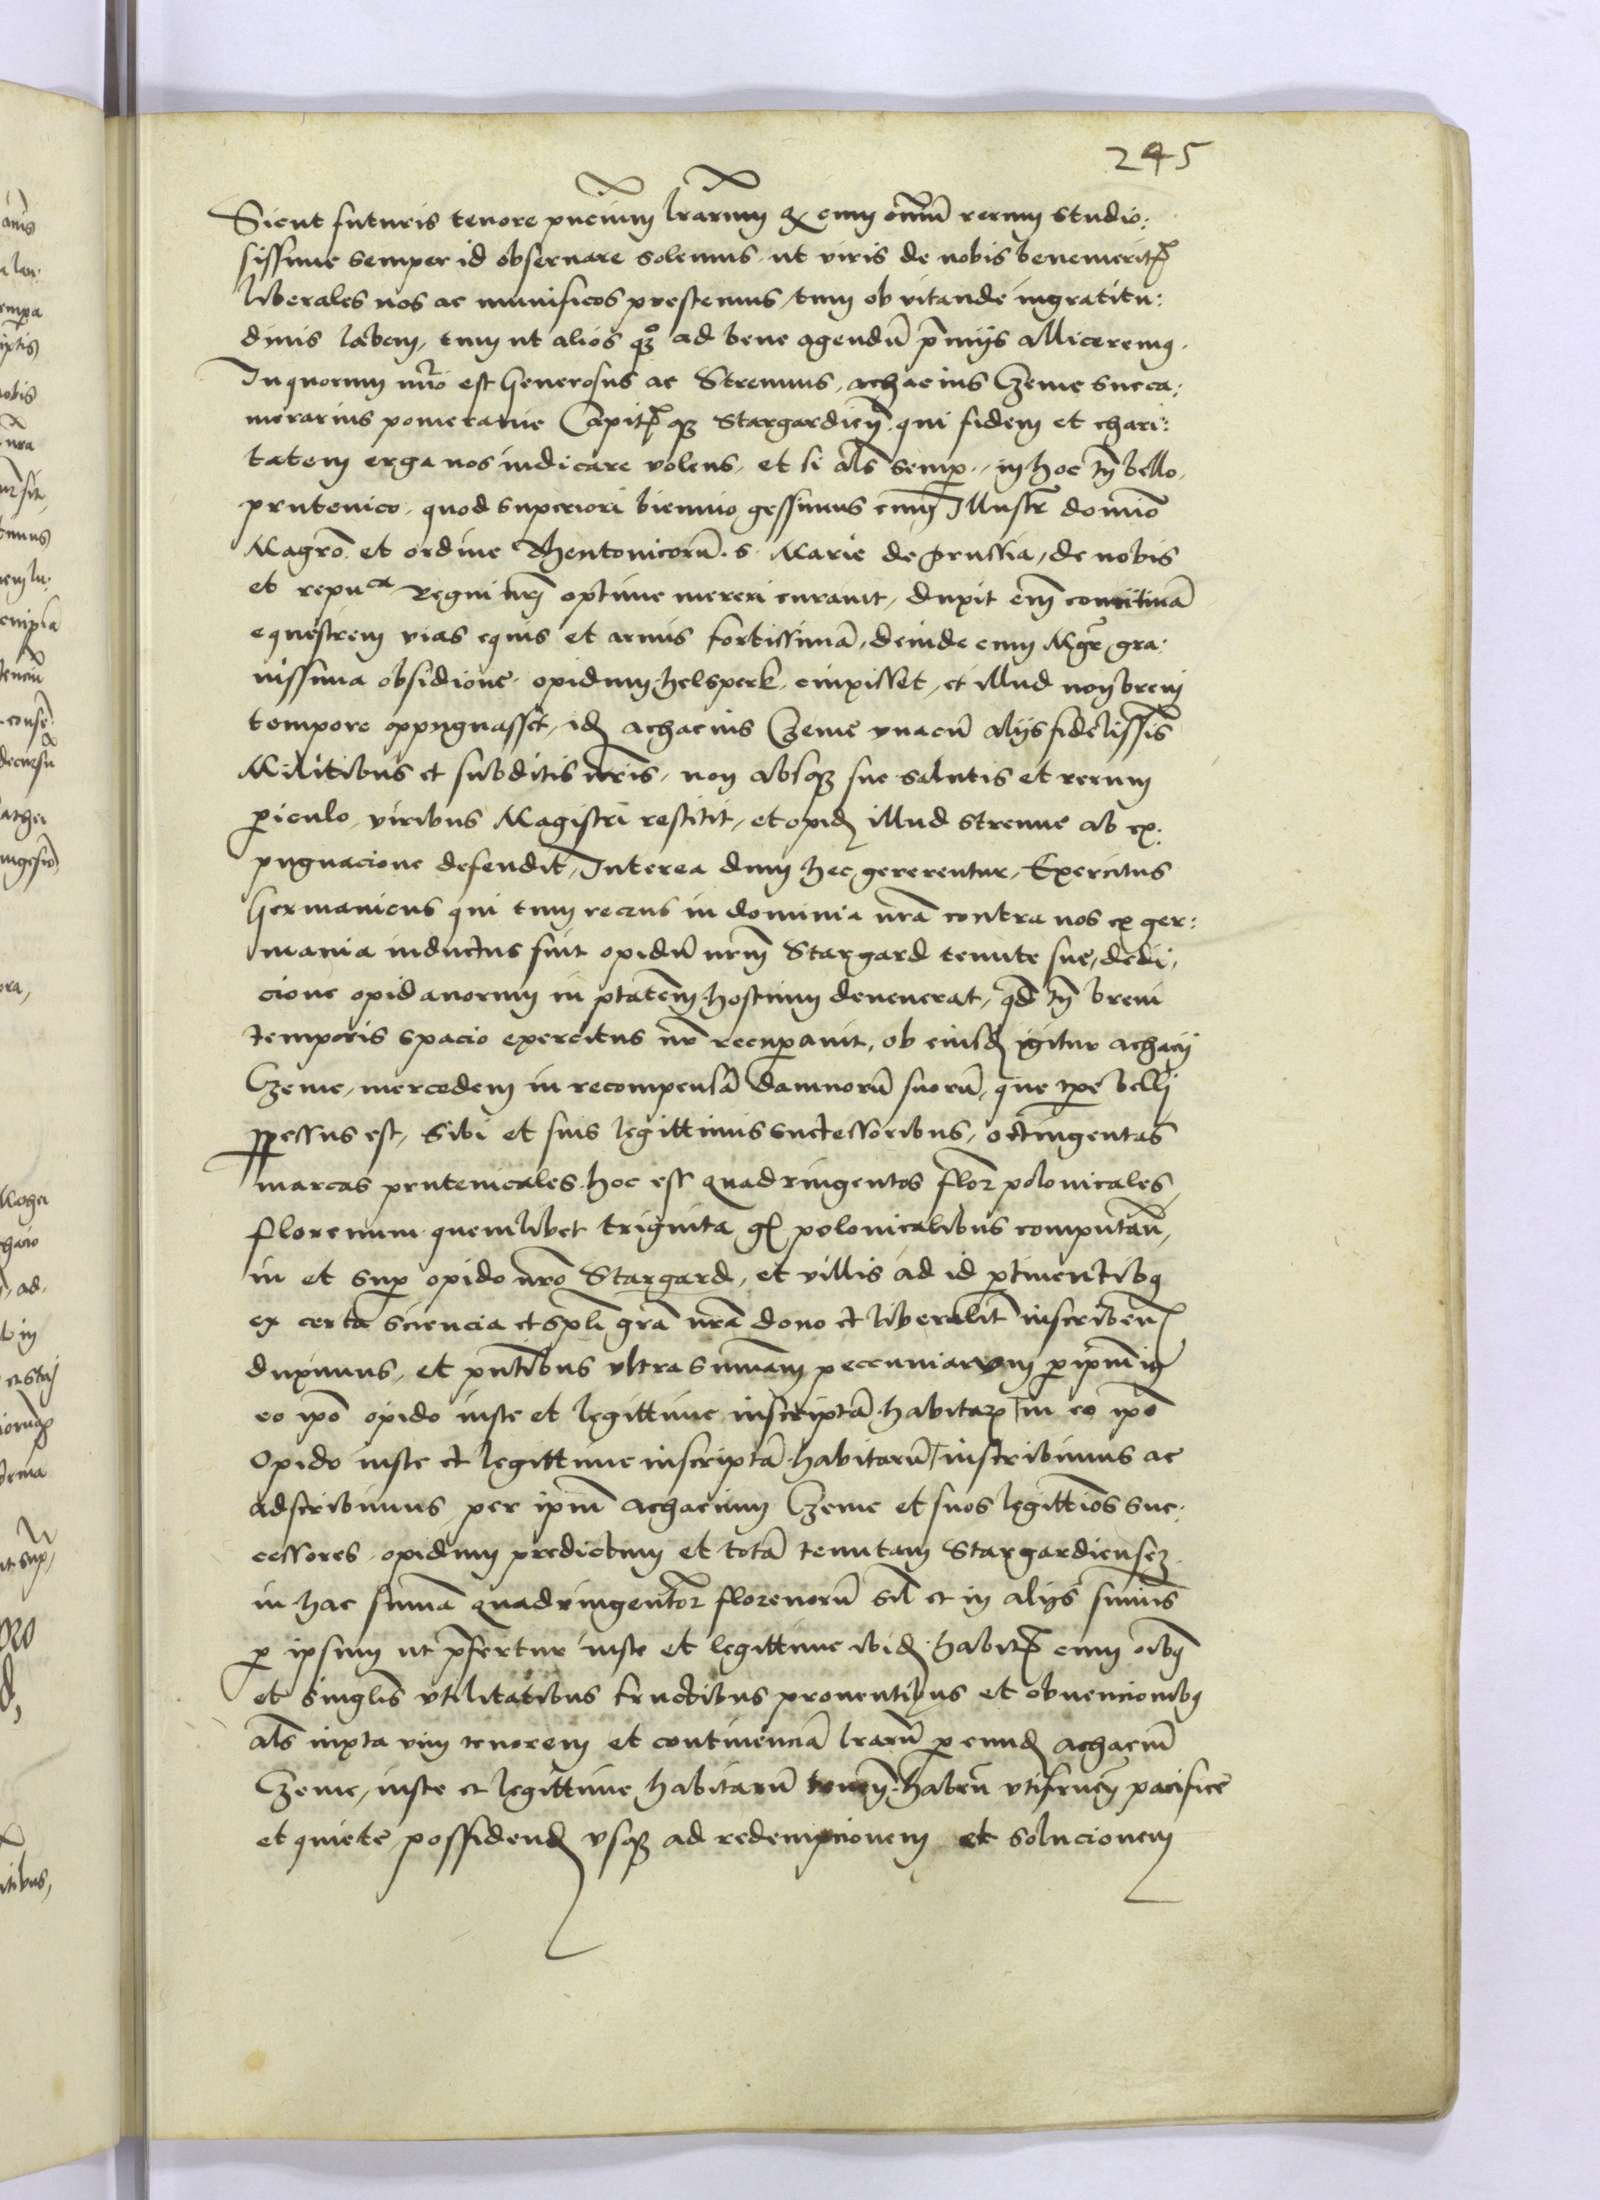 245
Sicut futuris tenore pncium lrarum qz cum omnium rerum studio:
sissime semper id obseruare solemus ut viris de nobis benemeritis
liberales nos ac munificos prestemus, tum ob vitande ingratitu:
dinis labem, tum ut alios qzo ad bene agendũ p̃mijs alliceremus.
In quorum nũro est Generosus ac Strenuus, achacius Czeme succa:
merarius pomeranie Capit qz Stargardien̄. qui fidem et chari:
tatem erga nos indicare volens, et si als̄ semp, in hoc tn̄ bello
prutenico, quod superiori biennio gessimus cum Illustr̄ domĩo
Magrõ et ordine Theutonicorũ. s. Marie de prussia, de nobis
et repuca Regni nrĩ optime mereri curauit, duxit em̄ comitiuã
equestrem vias equis et armis fortissimã, deinde cum Mgr̄ gra:
uissima obsidione opidum helsperk cinxisset, et illud non breui
tempore oppugnasset, idẽ achacius Czeme vnacũ alijs fidelissis̄
Militibus et subditis nr̄is, non absqz sue salutis et rerum
periculo, viribus Magistri restitit, et opidũ illud strenue ab ex:
pugnacione defendit, Interea dum hec gererentur, Exercitus
Germanicus qui tum recens in dominia nrã contra nos ex ger:
mania inductus fuit opidũ nrm̄ Stargard tenute sue, dedi:
cione opidanorum in ptatem hostium deuenerat, qd̃ tn̄ breui
temporis spacio exercitus nr̄ recuperauit, ob eiusdẽ igitur achacij
Czeme, mercedem in recompensã damnorũ suorũ, que tpe belli
ppessus est, Sibi et suis legittimis successoribus, octingentas
marcas prutenicales hoc est quadringentos flor̄ polonicales,
florenum quemlibet triginta gl polonicalibus computan̄,
in et sup opido nrõ Stargard, et villis ad id ptinentibus
ex certa sciencia et spl̄i grã nrã dono et liberalit̃ inscriben̄
duximus, et pntibus vltra summam peccuniarum p ipm̄ in
eo ipõ opido iuste et legittime inscriptã habitarz in eo ipõ
Opido iuste et legittime inscriptã habitarũ inscribimus ac
adscribimus per ipm̄ achacium Czeme et suos legittĩos suc:
cessores opidum predictum et totã tenutam Stargardiensez
in hac sum̄ã quadringentor̄ florenorũ sil̄ et in alijs sum̄is
p ipsum ut p̃fertur iuste et legittime ibidẽ habit̄ cum oĩbus
et singlis̄ vtilitatibus fructibus prouentibus et obuencionibus
als̄ iuxta vim tenorem et continenciã lrarũ p eundẽ achaciũ
Czeme, iuste et legittime habitarũ tenen̄ haben̄ vtifruen̄ pacifice
et quiete possidendũ vsqz ad redempcionem et solucionem